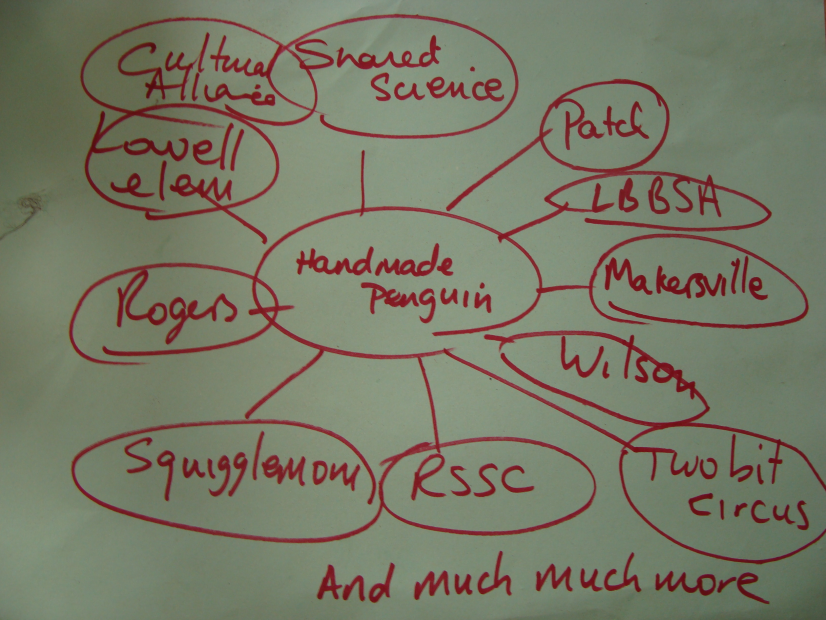 Cultural
Alliance
Shared
Science
Patch
Lowell
elem
LBBSA
Handmade
Penguin
Makersville
Rogers
Wilson
Squigglemom
RSSC
Two bit
circus
And much much more